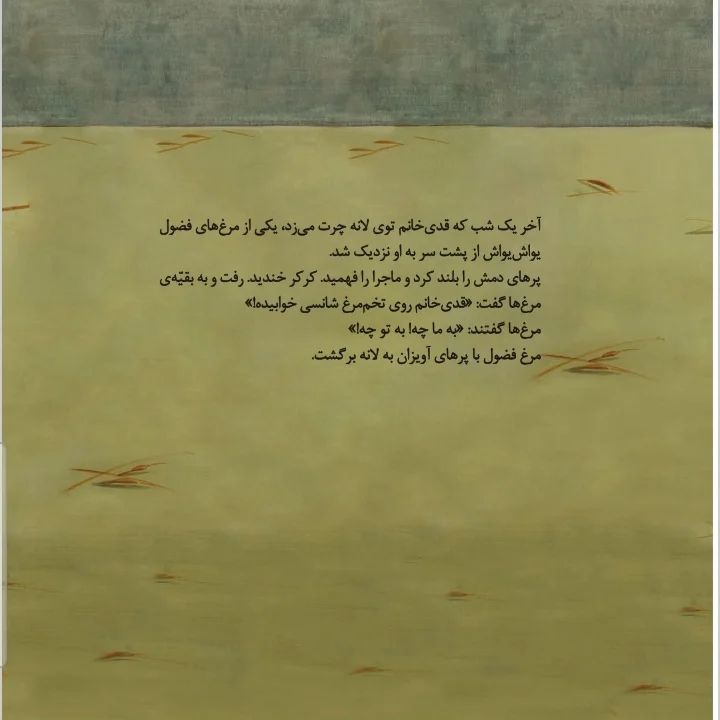 آخر یک شب که قدی‌خانم توی لانه چرت می‌زد، یکی از مرغ‌های فضول
یواش‌یواش از پشت سر به او نزدیک شد.
پرهای دمش را بلند کرد و ماجرا را فهمید. کرکر خندید. رفت و به بقیّه‌ی
مرغ‌ها گفت: «قدی‌خانم روی تخم‌مرغ شانسی خوابیده!»
مرغ‌ها گفتند: «به ما چه! به تو چه!»
مرغ فضول با پرهای آویزان به لانه برگشت.